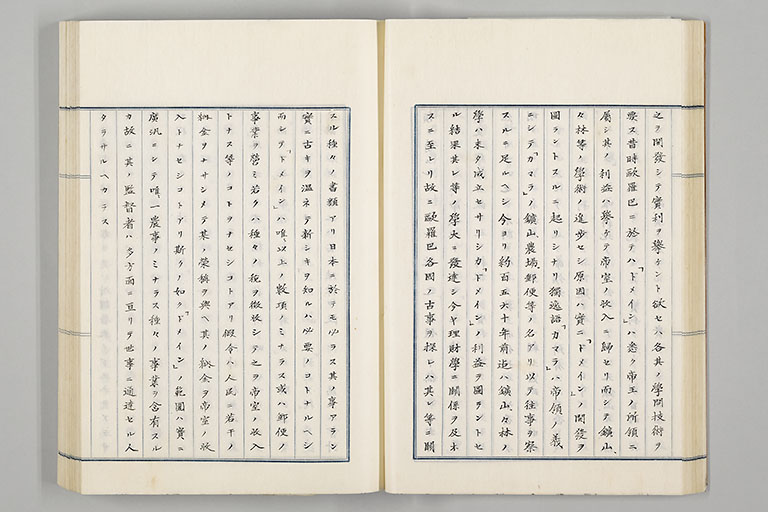 之ヲ開發シテ實利ヲ擧ケント欲セハ各其ノ學問技術ヲ
要ス昔時歐羅巴ニ於テハ「ドメイン」ハ悉ク帝王ノ所領ニ
屬シ其ノ利益ハ擧ケテ帝室ノ收入ニ歸セリ而シテ鑛山、
林等ノ學術ノ進步セシ原因ハ實ニ「ドメイン」ノ開發ヲ
圖ラントスルニ起リシナリ獨逸語「カマラ」ハ帝領ノ義
ニシテ「カマラ」ノ鑛山、農場、郵便等ノ名アリ以テ往事ヲ察
スルニ足ルヘシ今ヨリ約百五六十年前迄ハ鑛山、林ノ
學ハ未タ成立セサリシカ「ドメイン」ノ利益ヲ圖ラントセ
ル結果其レ等ノ學大ニ發達シ今ヤ理財學ニ關係ヲ及ホ
スニ至レリ故ニ歐羅巴各國ノ古事ヲ探レハ其レ等ニ關
スル種々ノ書類アリ日本ニ於テモ必ラス其ノ事アラン
實ニ古キヲ溫ネテ新シキヲ知ルハ必要ノコトナルヘシ
而シテ「ドメイン」ハ唯以上ノ數項ノミナラス或ハ郵便ノ
事業ヲ營ミ若クハ種々ノ稅ヲ徵收シテ之ヲ帝室ノ收入
トナス等ノコトヲナセシコトアリ假令ハ人民ニ若干ノ
納金ヲナサシメテ某ノ榮稱ヲ與ヘ其ノ納金ヲ帝室ノ收
入トナセシコトアリ斯クノ如ク「ドメイン」ノ範圍ハ實ニ
廣汎ニシテ唯一農事ノミナラス種々ノ事業ヲ含有スル
カ故ニ其ノ監督者ハ多方面ニ亘リテ世事ニ通達セル人
タラサルヘカラス